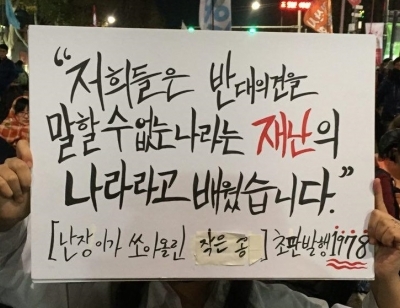 “저희들은 반대의견을
말할 수 없는 나라는 재난의
나라라고 배웠습니다.”
[난장이가 쏘아올린 작은 공] 초판발행 1978